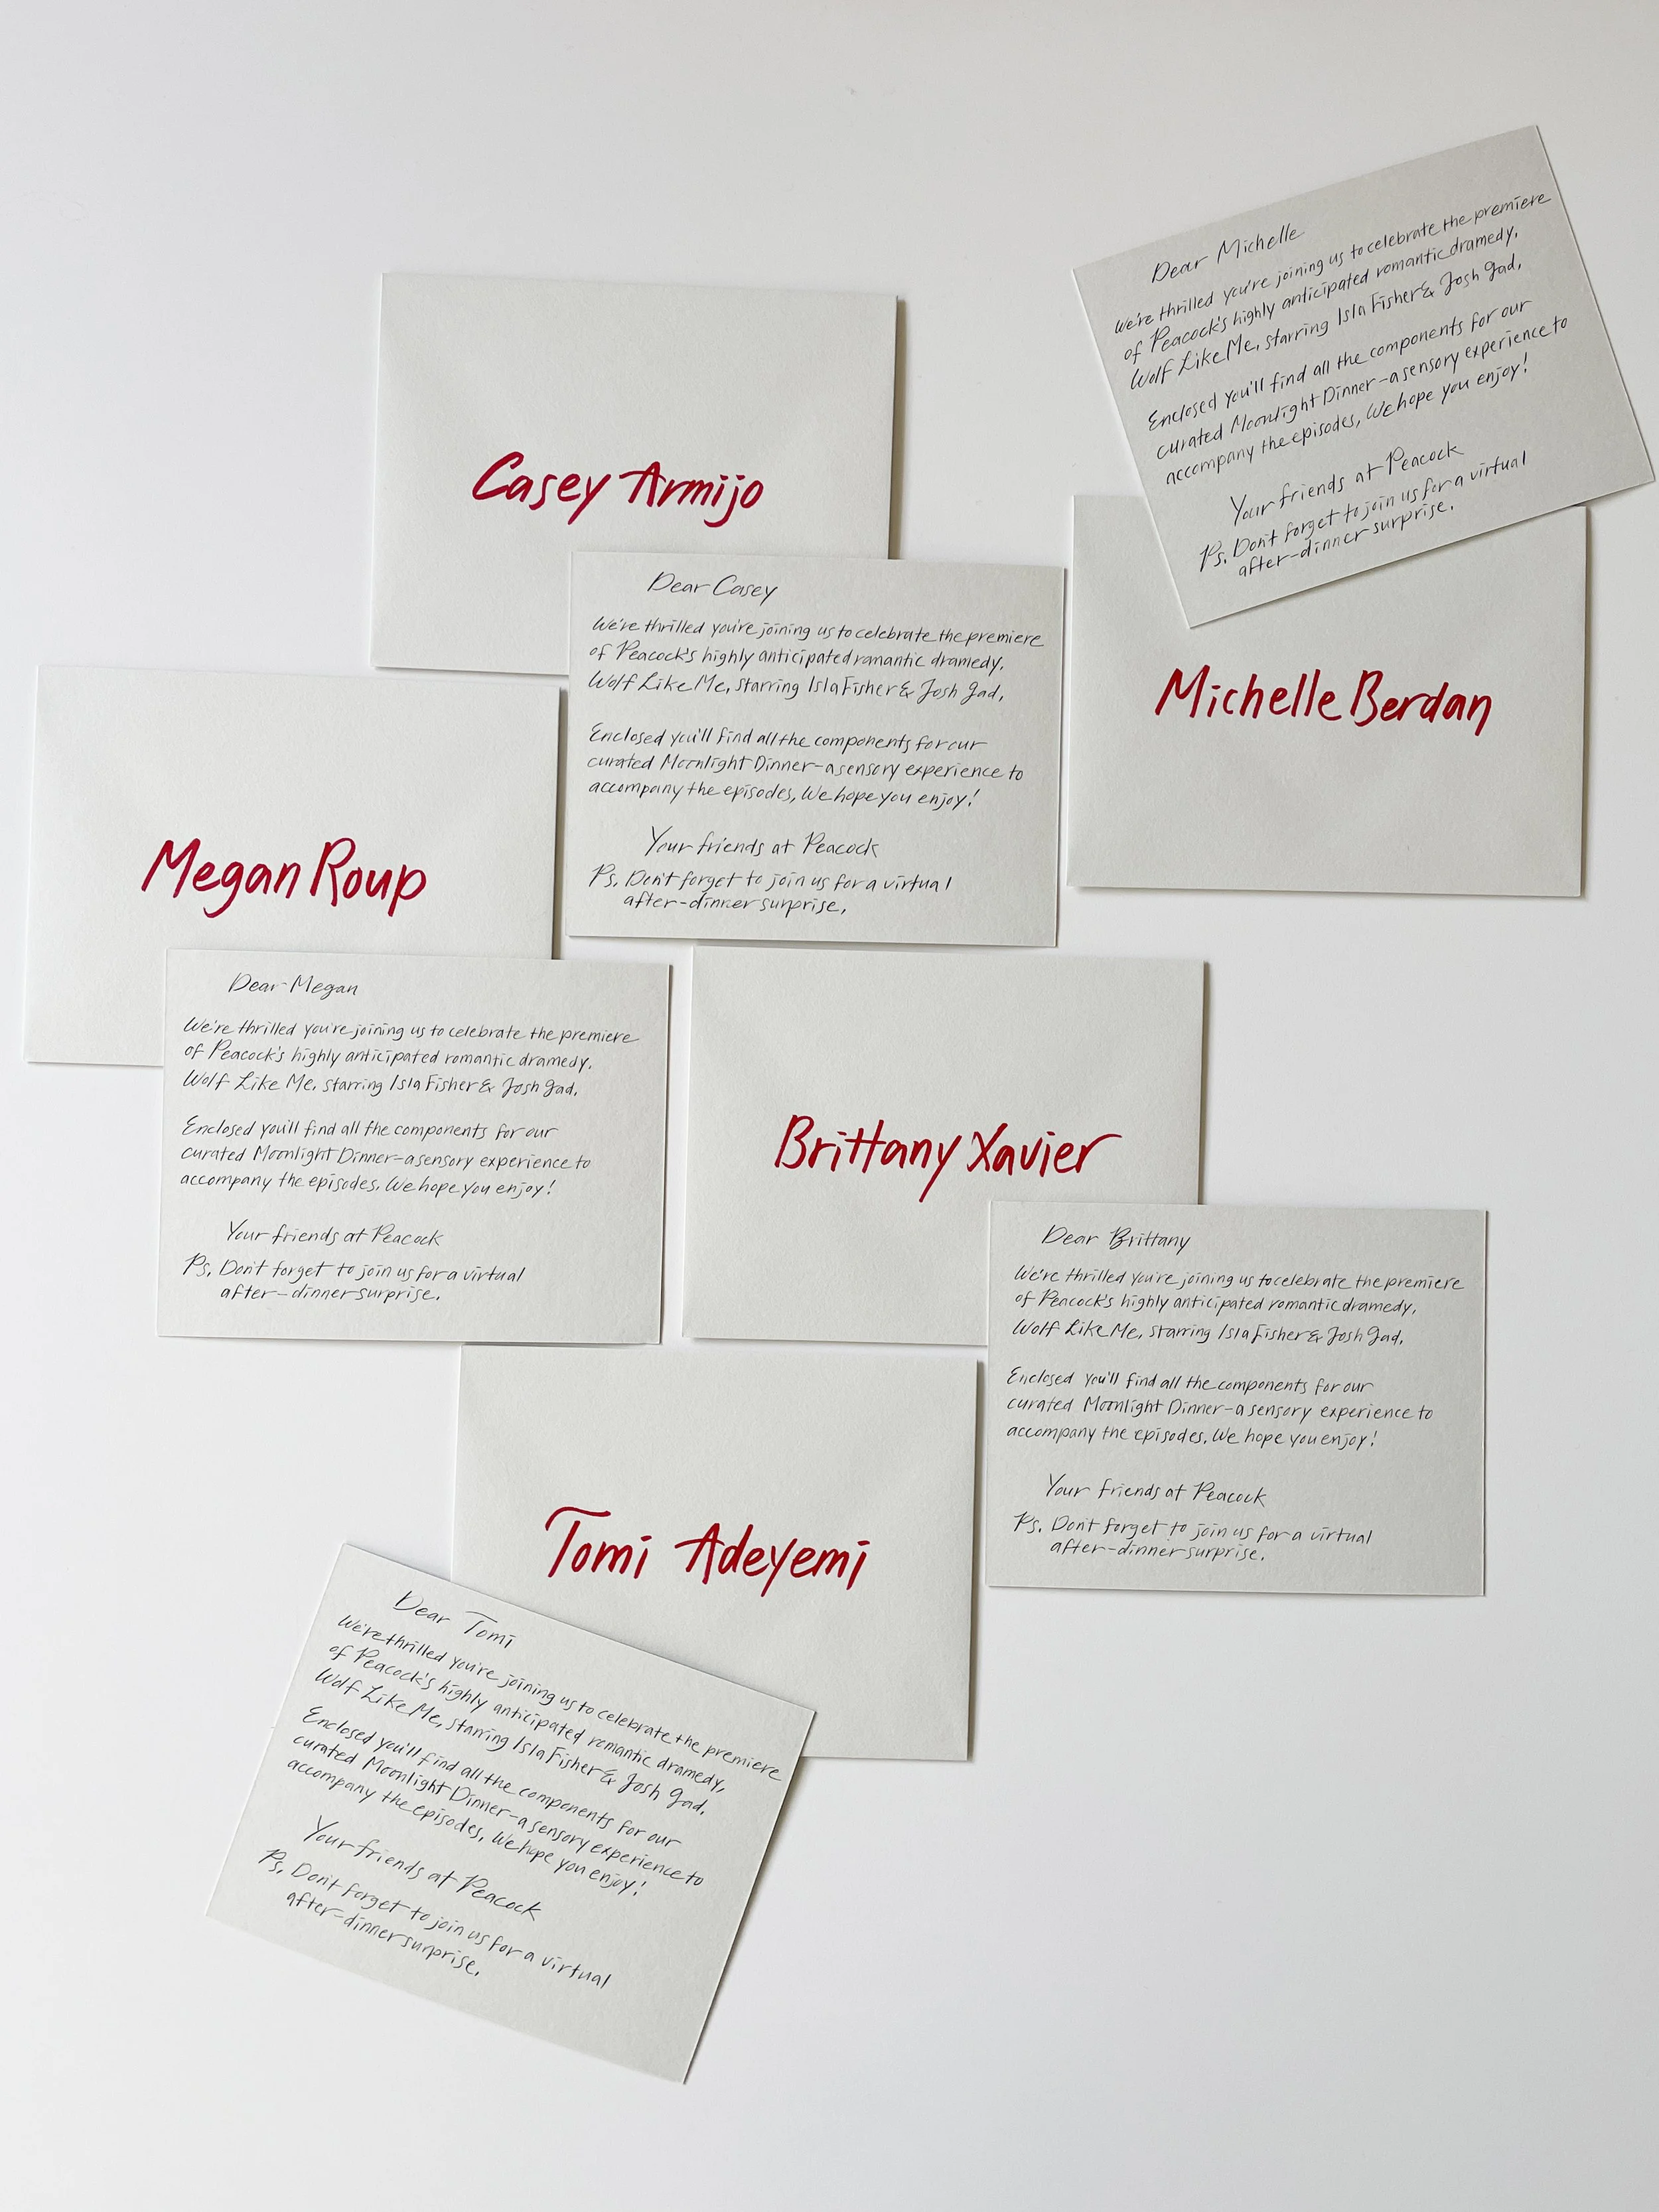 Dear Michelle
We're thrilled you're joining us to celebrate the premiere
of Peacock's highly anticipated romantic dramedy,
Wolf Like Me, starring Isla Fisher & Josh Gad.
Enclosed you'll find all the components for our
curated Moonlight Dinner-a sensory experience to
accompany the episodes, We hope you enjoy!
Your friends at Peacock
Ps. Don't forget to join us for a virtual
after-dinner surprise.
Casey Armijo
Dear Casey
We're thrilled you're joining us to celebrate the premiere
of Peacock's highly anticipated romantic dramedy,
Wolf Like Me, starring Isla Fisher & Josh Gad,
Enclosed you'll find all the components for our
curated Moonlight Dinner-a sensory experience to
accompany the episodes, We hope you enjoy!
Your friends at Peacock
Ps. Don't forget to join us for a virtual
after-dinner surprise,
Michelle Berdan
Megan Roup
Dear Megan
We're thrilled you're joining us to celebrate the premiere
of Peacock's highly anticipated romantic dramedy,
Wolf Like Me, starring Isla Fisher & Josh Gad,
Enclosed you'll find all the components for our
curated Moonlight Dinner-a sensory experience to
accompany the episodes, We hope you enjoy!
Your friends at Peacock
Ps. Don't forget to join us for a virtual
after-dinner surprise.
Brittany Xavier
Dear Brittany
We're thrilled you're joining us to celebrate the premiere
of Peacock's highly anticipated romantic dramedy,
Wolf Like Me, starring Isla Fisher & Josh Gad,
Enclosed you'll find all the components for our
curated Moonlight Dinner-a sensory experience to
accompany the episodes, We hope you enjoy!
Your friends at Peacock
Ps. Don't forget to join us for a virtual
after-dinner surprise.
Tomi Adeyemi
Dear Tomi
We're thrilled you're joining us to celebrate the premiere
of Peacock's highly anticipated romantic dramedy,
Wolf Like Me, starring Isla Fisher & Josh Gad,
Enclosed you'll find all the components for our
curated Moonlight Dinner-a sensory experience to
accompany the episodes, We hope you enjoy!
Your friends at Peacock
Ps. Don't forget to join us for a virtual
after-dinner surprise.